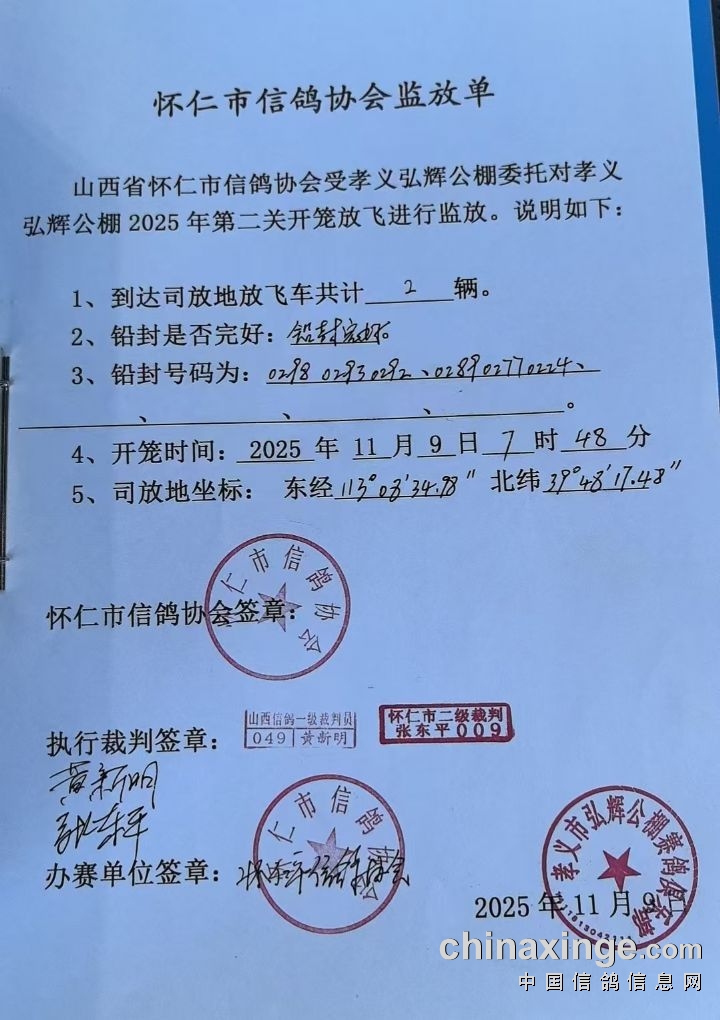 怀仁市信鸽协会监放单
山西省怀仁市信鸽协会受孝义弘辉公棚委托对孝义
弘辉公棚 2025 年第二关开笼放飞进行监放。说明如下：
1、到达司放地放飞车共计 2 辆。
2、铅封是否完好：铅封完好
3、铅封号码为：0298 0293 0292、0289 0277 0224、
、 、 、 。
4、开笼时间：2025 年 11 月 9 日 7 时 48 分
5、司放地坐标： 东经 113°03′34.98″ 北纬 39°48′17.48″
怀仁市信鸽协会
怀仁市信鸽协会签章：
山西信鸽一级裁判员
049 黄新明
怀仁市二级裁判
张东平 009
执行裁判签章：
黄新明
张东平
怀仁市信鸽协会
办赛单位签章：怀仁市信鸽协会
孝义市弘辉公棚赛鸽俱乐部
2025 年 11 月 9 日
chinaxinge.com
中国信鸽信息网